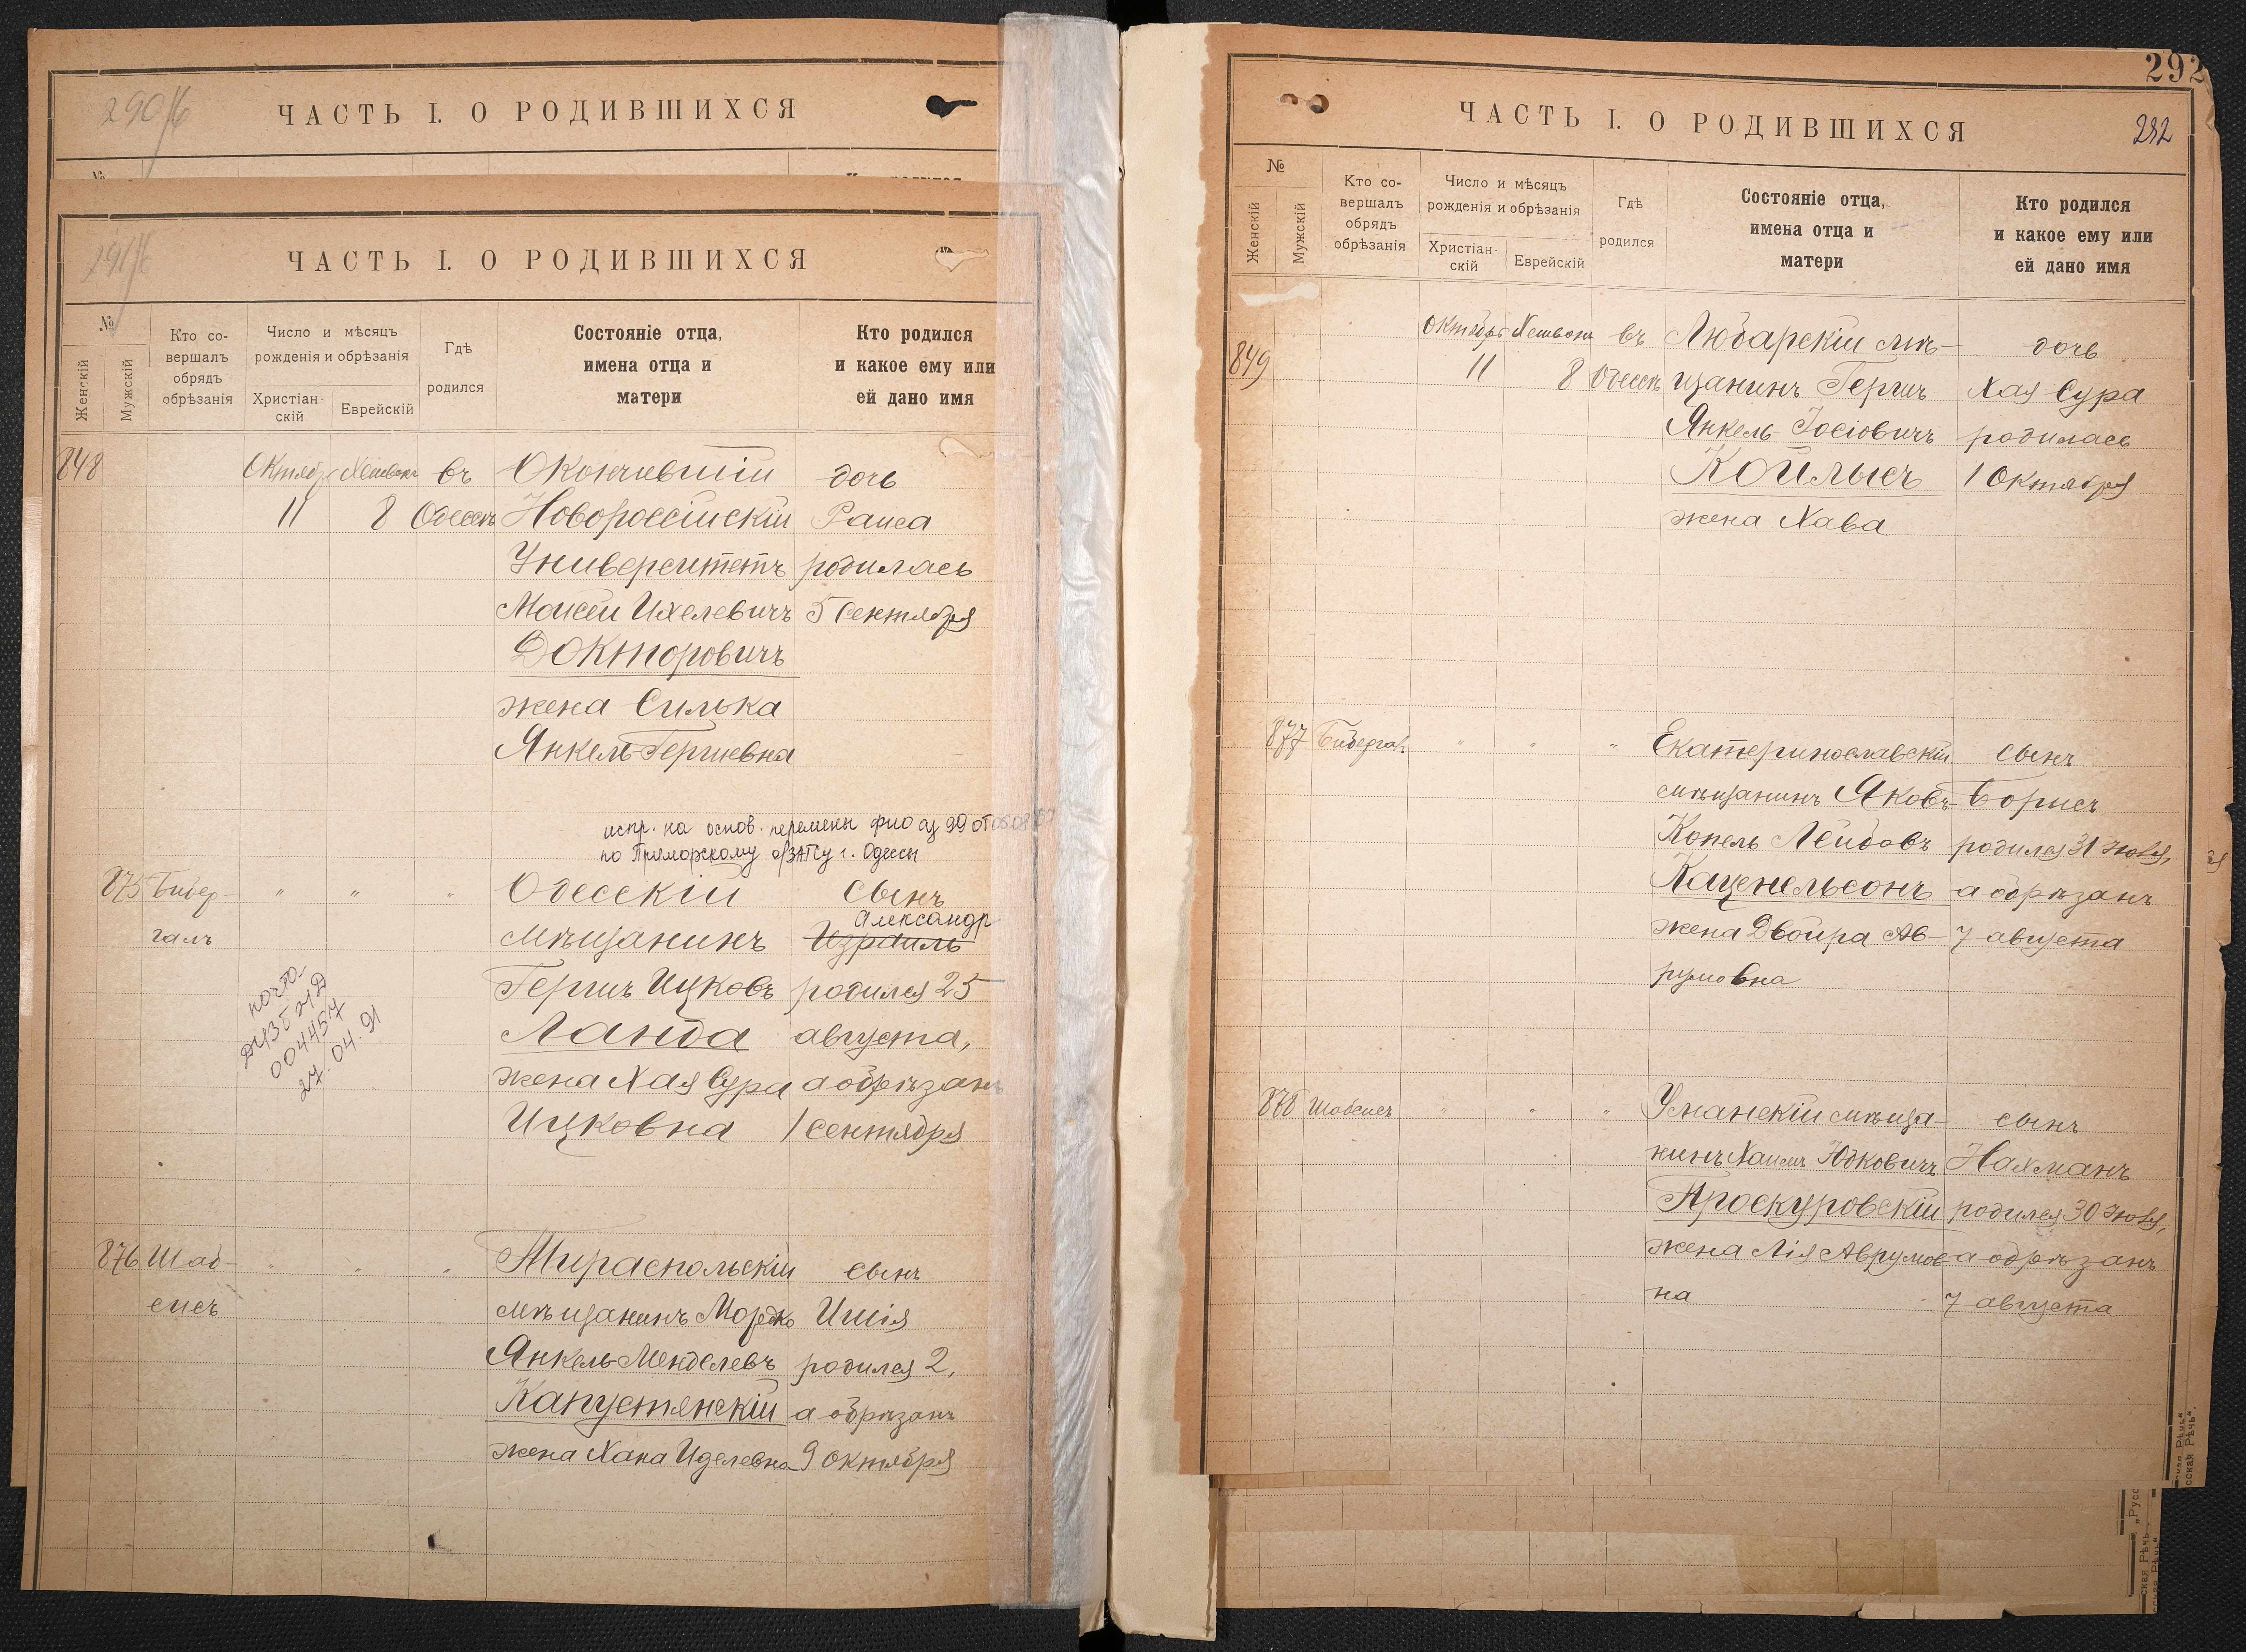 290/б
ЧАСТЬ I. О РОДИВШИХСЯ
№
291/б
ЧАСТЬ I. О РОДИВШИХСЯ
№
Женскій
Мужскій
Кто со-
вершалъ
обрядъ
обрѣзанія
Число и мѣсяцъ
рожденія и обрѣзанія
Христіан-
скій
Еврейскій
Гдѣ
родился
Состояніе отца,
имена отца и
матери
Кто родился
и какое ему или
ей дано имя
848 въ Окончившій дочь
11 8 Одессѣ Новороссійскій Раиса
Университетъ родилась
Моисей Ихелевичъ 5 Сентября
Докторовичъ
жена Силька
Янкель-Гершевна
испр. на основ. перемены фио аз 99 от
по Приморскому о/ЗАГСу г. Одессы
875 Бибер- " " " Одесскій Сынъ
Александр
галъ мѣщанинъ Израиль
Гершъ Ицковъ родился 25
Ланда августа,
жена Хая Сура а обрѣзанъ
Ицковна 1 Сентября
004457
27.04.91
876 Шаб- " " " Тираспольскій сынъ
сисъ мѣщанинъ Мордко Ишія
Янкель-Менделевъ родился 2,
Капустянскій а обрѣзанъ
жена Хана Иделевна 9 октября
292
ЧАСТЬ I. О РОДИВШИХСЯ
292
№
Женскій
Мужскій
Кто со-
вершалъ
обрядъ
обрѣзанія
Число и мѣсяцъ
рожденія и обрѣзанія
Христіан-
скій
Еврейскій
Гдѣ
родился
Состояніе отца,
имена отца и
матери
Кто родился
и какое ему или
ей дано имя
Октябрь Хешвонъ въ Любарскій мѣ- дочь
849 11 8 Одессѣ щанинъ Гершъ Хая Сура
Янкель-Іосіовичъ родилась
Койлысъ 1 Октября
жена Хава
877 Бибергалъ " " " Екатеринославскій сынъ
мѣщанинъ Яковъ- Борисъ
Копель Лейбовъ родился 31 Іюля,
Каценельсонъ а обрѣзанъ
жена Двойра Ав- 7 августа
румовна
878 Шабсисъ " " " Уманскій мѣща- сынъ
нинъ Хаимъ Юдковичъ Нахманъ
Проскуровскій родился 30 Іюля,
жена Лія Аврумов- а обрѣзанъ
на 7 августа